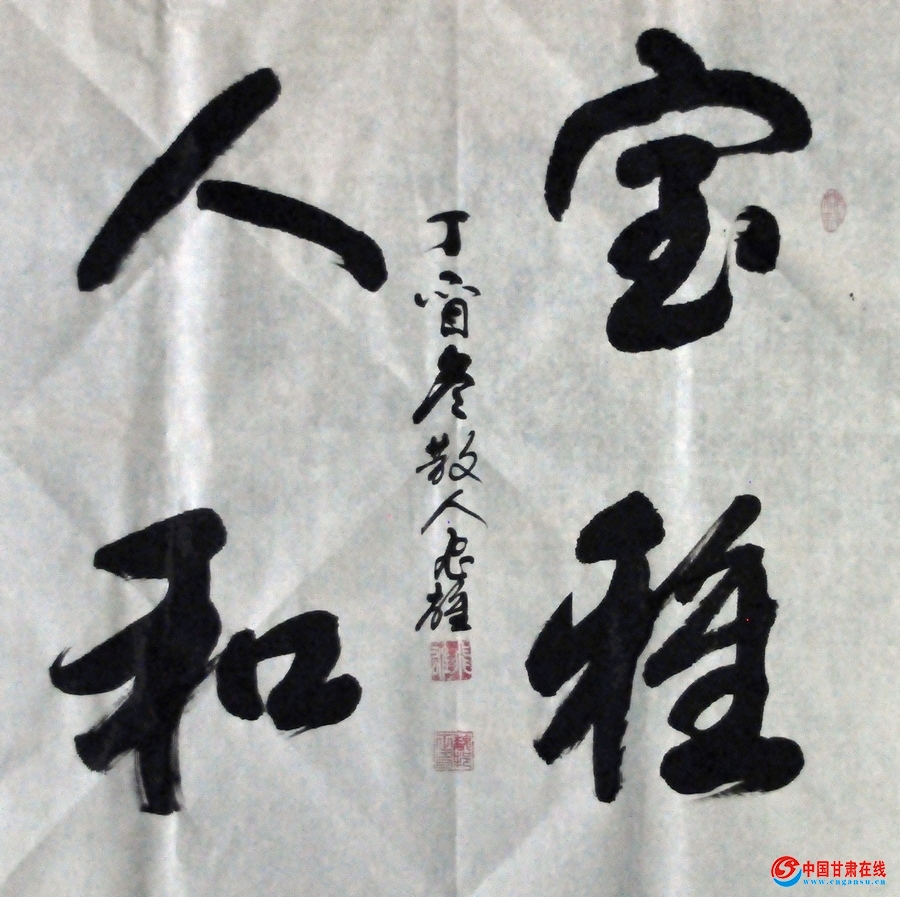 室雅
人和
丁酉冬散人雄
中国甘肃在线
www.cngansu.cn